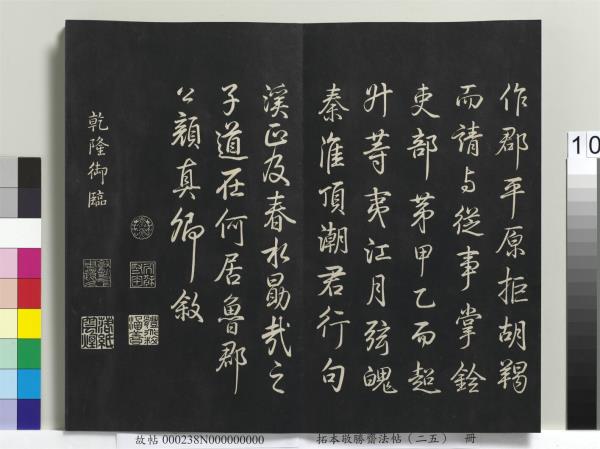 作郡平原拒胡羯
而請与從事掌銓
吏部苐甲乙而超
升等夷江月弦魄
秦淮頂潮君行句
溪正及春水勗哉之
子道在何居魯郡
公顏真卿敘
乾隆御臨
故帖 000238N000000000 拓本敬勝齋法帖(二五) 冊
10